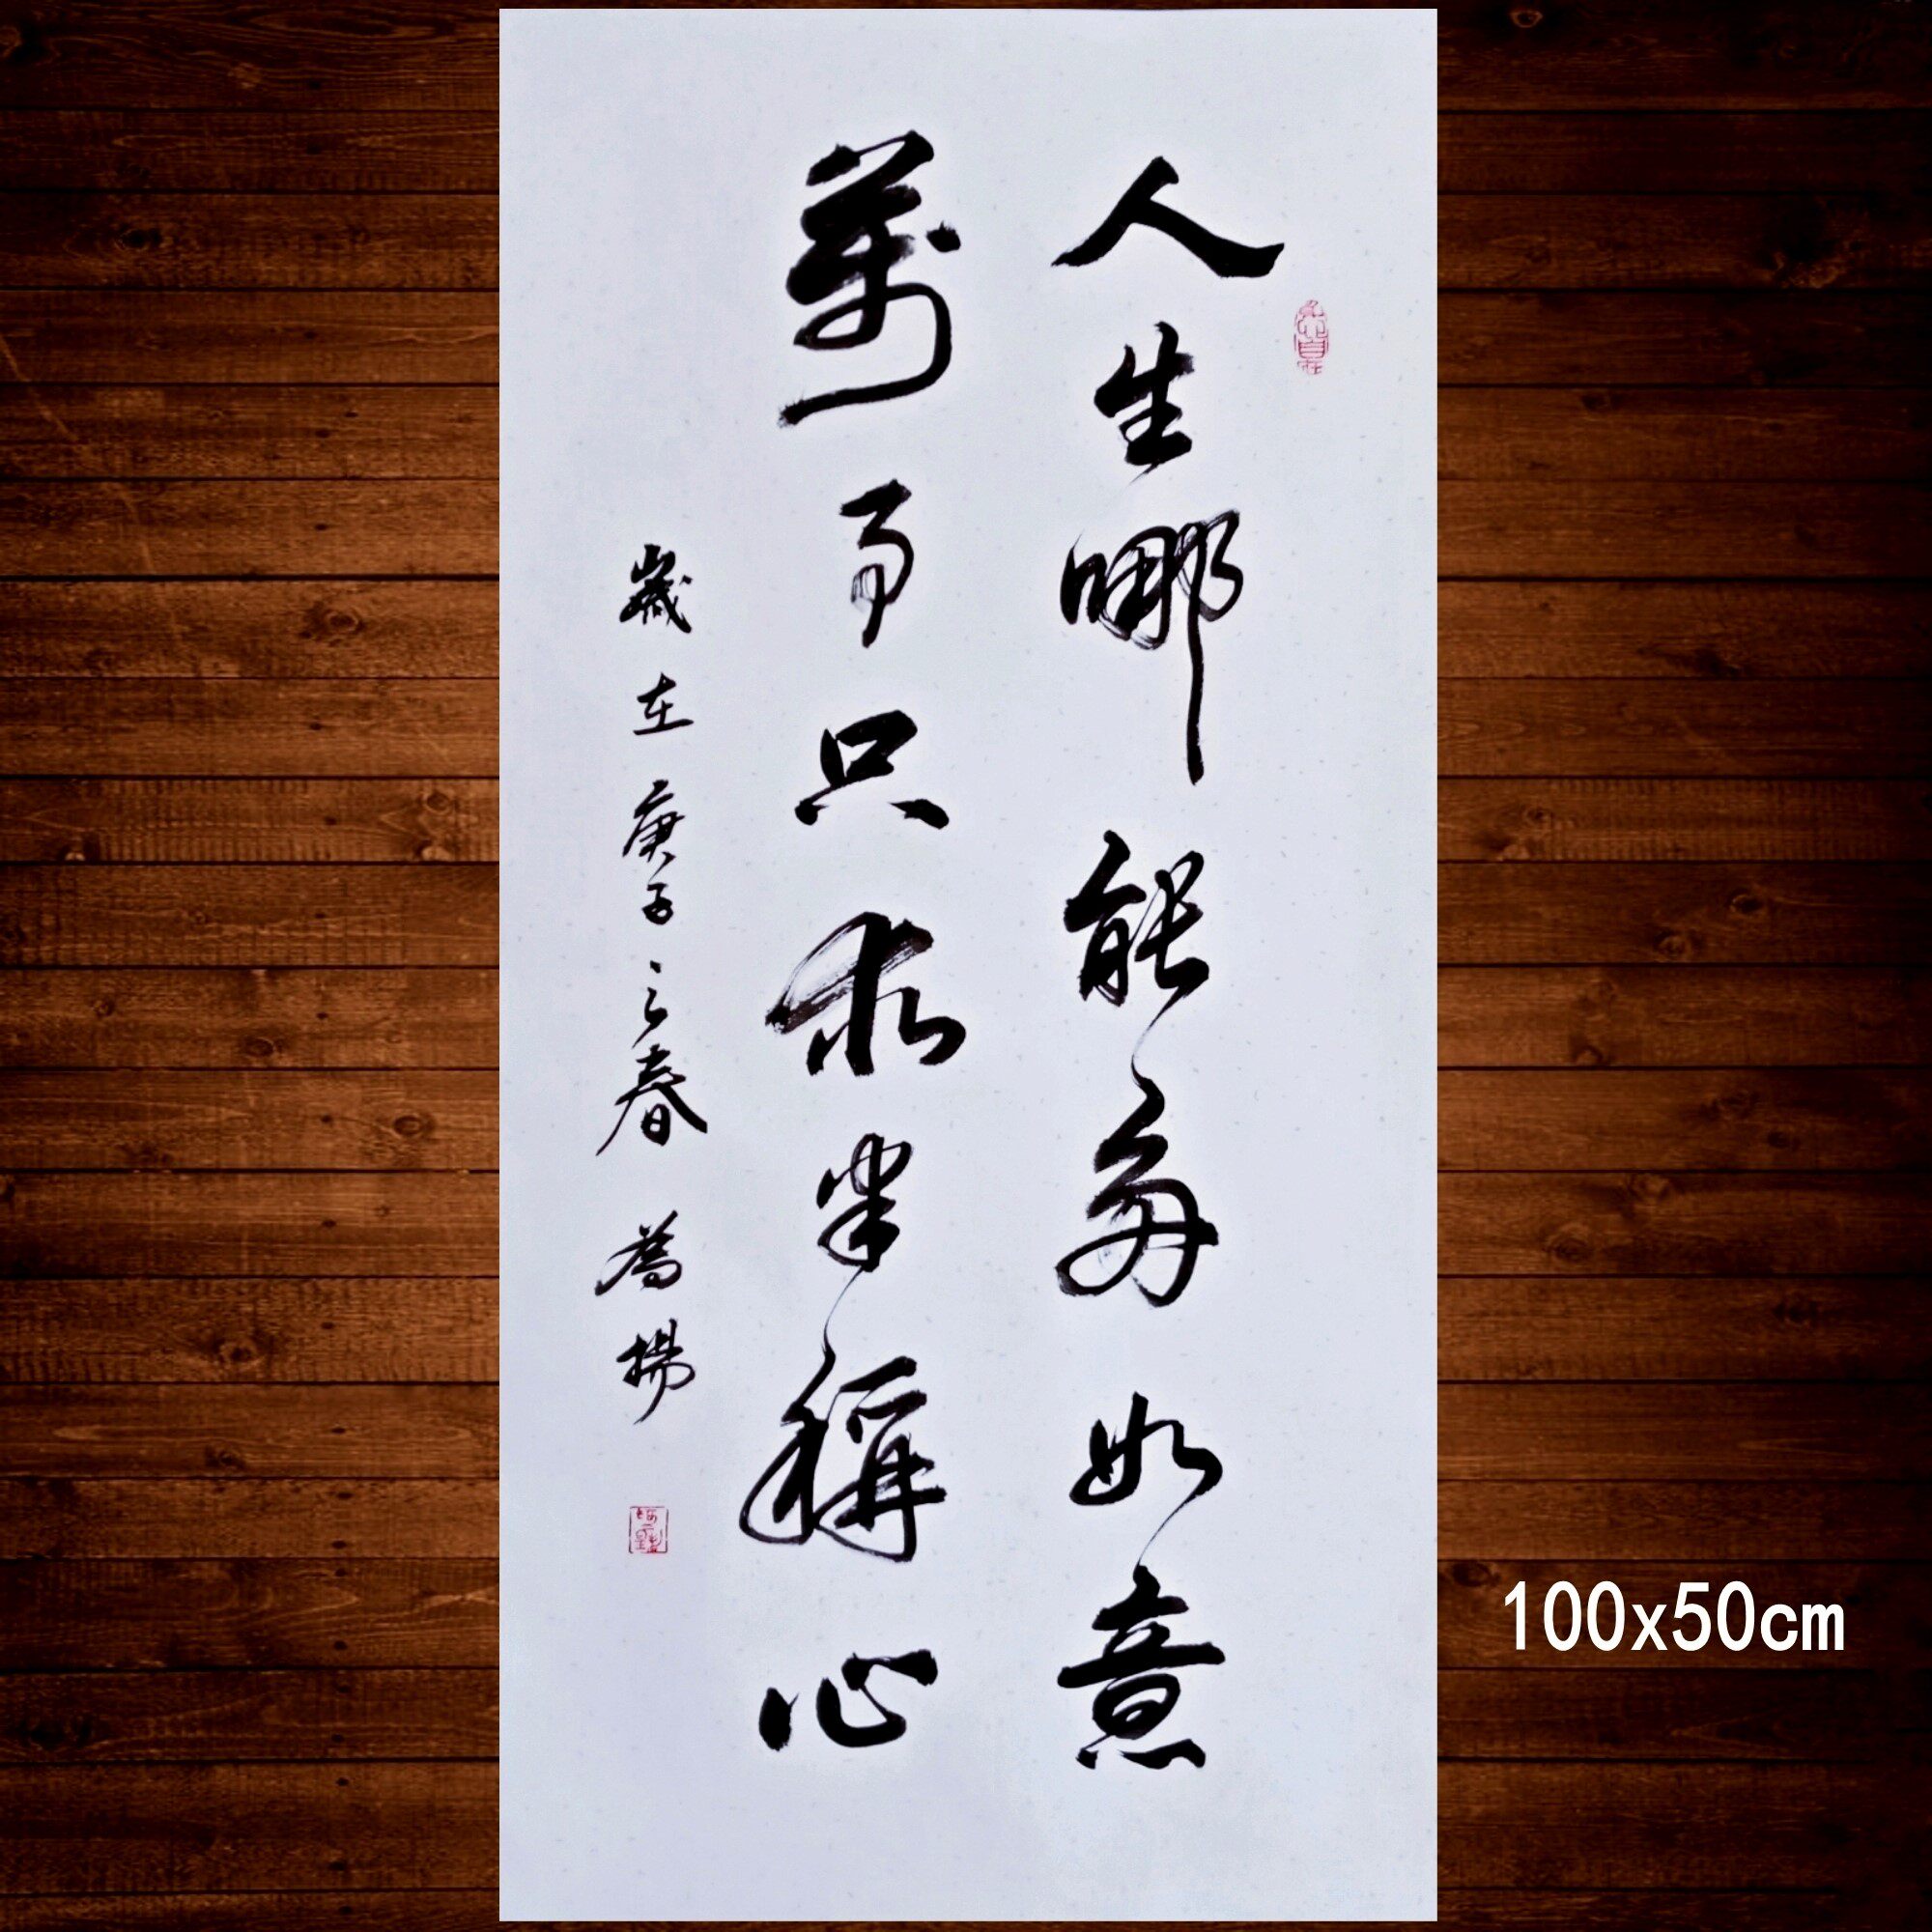 人生哪能多如意
萬事只求半稱心
歲在庚子之春 為揚
100x50cm